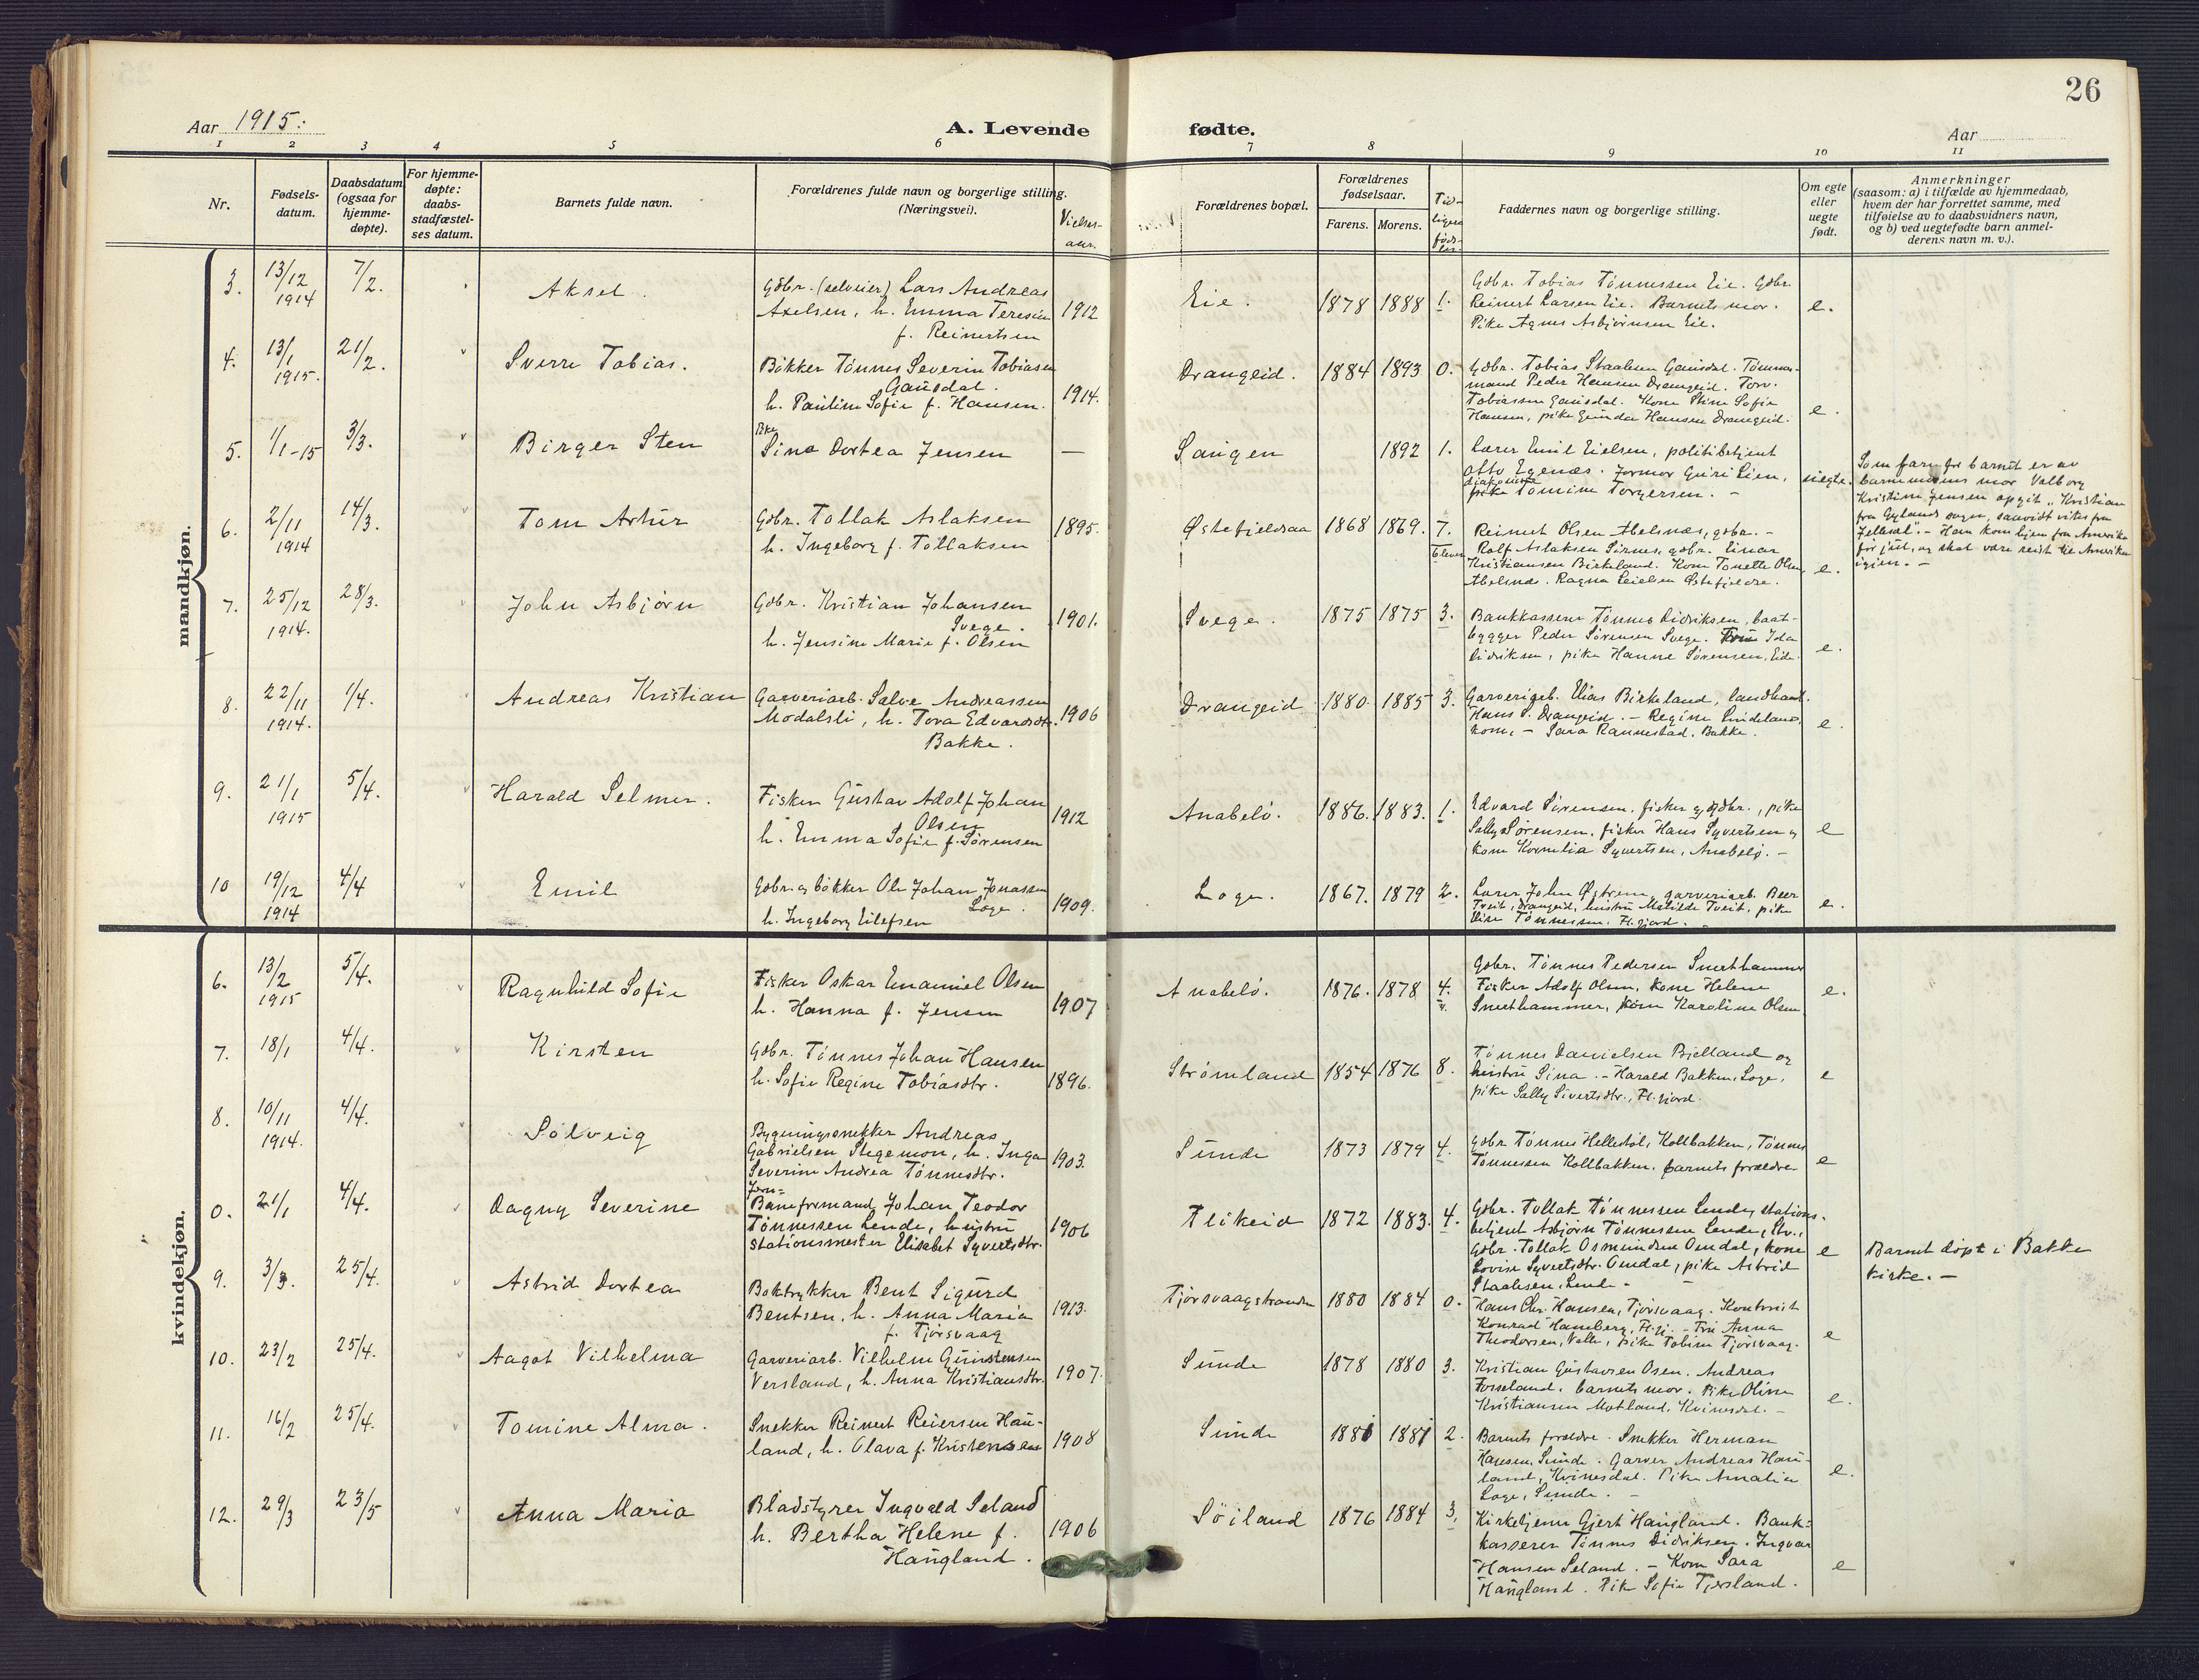 26
Aar 1915:
A. Levende fødte.
Aar
1 2 3 4 5 6 7 8 9 10 11
Nr.
Fødsels-
datum.
Daabsdatum
(ogsaa for
hjemme-
døpte).
For hjemme-
døpte:
daabs-
stadfæstel-
ses datum.
Barnets fulde navn.
Forældrenes fulde navn og borgerlige stilling.
(Næringsvei).
Vielses-
aar.
Forældrenes bopæl.
Forældrenes
fødselsaar.
Farens. Morens.
Tid-
ligere
føds-
ler.
Faddernes navn og borgerlige stilling.
Om egte
eller
uegte
født.
Anmerkninger
(saasom: a) i tilfælde av hjemmedaab,
hvem der har forrettet samme, med
tilføielse av to daabsvidners navn,
og b) ved uegtefødte barn anmel-
derens navn m. v.).
mandkjøn.
3. 13/12 1914 7/2. Aksel.
Gdbr. (selveier) Lars Andreas
Axelsen, h. Emma Teresia
f. Reinertsen
1912 Eie. 1878 1888 1.
Gdbr. Tobias Tønnessen Eie. Gdbr.
Reinert Larsen Eie. Barnets mor.
Pike Agnes Asbjørnsen Eie.
e.
4. 13/1 1915. 21/2. Sverre Tobias.
Bøkker Tønnes Severin Tobiasen
Gausdal.
h. Pauline Sofie f. Hansen.
1914. Drangeid. 1884 1893 0.
Gdbr. Tobias Staalesen Gausdal. Tømmer-
mand Peder Hansen Drangeid. Torv.
Tobiassen Gausdal. Kone Stine Sofie
Hansen, pike Gunda Hansen Drangeid.
e.
5. 1/1-15 3/3. Birger Sten
Pike
Sina Dortea Jensen
— Saugen 1892 1.
Lærer Emil Eielsen, politibetjent
Otto Egenæs. Jormor Guri Lien,
diakonisse
pike Tomine Torgersen. -
uegte.
Som far for barnet er av
barnemorens mor Valborg
Kristine Jensen opgit "Kristian
fra Gylands sogn, saavidt vites fra
Jelleval". - Han kom hjem fra Amerika
før jul, og skal være reist til Amerika
igjen. -
6. 2/11 1914 14/3. Tom Artur
Gdbr. Tollak Aslaksen
h. Ingeborg f. Tollaksen
1895. Østefjeldsaa 1868 1869. 7.
6 lever
Reinert Olsen Abelsnæs, gdbr. -
Rolf Aslaksen Sirnes, gdbr. Einar
Kristiansen Birkeland. Kone Tonette Olsen,
Abelsnæs. Ragna Eielsen Østefjeldre.
e.
7. 25/12 1914. 28/3. John Asbjørn
Gdbr. Kristian Johansen
Svege.
h. Jensine Marie f. Olsen
1901. Svege. 1875 1875 3.
Bankkasserer Tønnes Didriksen, baat-
bygger Peder Sørensen Svege. Frue Ida
Didriksen, pike Hanne Sørensen, Eide.
e.
8. 22/11 1914. 1/4. Andreas Kristian
Garveriarb. Salve Andreassen
Modalsli, h. Tora Edvardsdtr.
Bakke.
1906 Drangeid 1880 1885 3.
Garveriarb. Elias Birkeland, landhandl.
Hans P. Drangeid. - Regine Lindeland,
kone, - Sara Rannestad, Bakke.
e.
9. 21/1 1915 5/4. Harald Selmer.
Fisker Gustav Adolf Johan
Olsen
h. Emma Sofie f. Sørensen
1912 Anabelø. 1886. 1883. 1.
Edvard Sørensen, fisker og gdbr., pike
Sally Sørensen, fisker Hans Syvertsen og
kone Kornelia Syvertsen, Anabelø. -
e
10 19/12 1914 4/4 Emil
Gdbr. og bøkker Ole Johan Jonassen
Loge.
h. Ingeborg Eilefsen
1909. Loge. 1867. 1879 2.
Lærer John Østrem, garveriarb. Beer
Tveit, Drangeid, hustru Matilde Tveit, pike
Elise Tønnessen, Fl.fjord.
e.
kvindekjøn.
6. 13/2 1915 5/4. Ragnhild Sofie
Fisker Oskar Emanuel Olsen
h. Hanna f. Jensen
1907 Anabelø. 1876. 1878 4.
Gdbr. Tønnes Pedersen Snerthammer
Fisker Adolf Olsen, kone Helene
Snerthammer, kone Karoline Olsen
e.
7. 18/1 4/4. Kirsten
Gdbr. Tønnes Johan Hansen
h. Sofie Regine Tobiasdtr.
1896. Strømland 1854 1876 8.
Tønnes Danielsen Bjelland og
hustru Sina. - Harald Bakken, Loge,
pike Sally Sivertsdtr., Fl.fjord.
e
8. 10/11 1914. 4/4. Sølveig
Bygningssnekker Andreas
Gabrielsen Stegemon, h. Inga
Severine Andrea Tønnesdtr.
1903. Sunde 1873 1879 4.
Gdbr Tønnes Hellestøl, Kollbakken, Tønnes
Tønnessen Kollbakken. Barnets forældre
e
0. 21/1 4/4. Dagny Severine
Jern-
Baneformand Johan Teodor
Tønnessen Lende, hustru
stationsmester Elisabet Syvertsdtr.
1906 Flikeid 1872 1883. 4.
Gdbr. Tollak Tønnessen Lende, stations-
betjent Asbjørn Tønnessen Lende, Stv.,
Gdbr. Tollak Osmundsen Omdal, kone
Lovise Syvertsdtr. Omdal, pike Astrid
Staalesen, Lende -
e
Barnet døpt i Bakke
kirke. -
9. 3/3. 25/4. Astrid Dortea
Boktrykker Bent Sigurd
Bentsen, h. Anna Maria
f. Tjørsvaag
1913. Tjørsvaagstranden 1880 1884 0.
Hans Chr. Hansen, Tjørsvaag. Kontorist
Konrad Hamberg, Fl.fj. - Fru Anna
Theodorsen, Valle, pike Tobine Tjørsvaag.
e
10. 23/2 25/4. Aagot Vilhelma
Garveriarb. Vilhelm Gunstensen
Versland, h. Anna Kristiansdtr.
1907. Sunde 1878 1880 3.
Kristian Gustavsen Osen. Andreas
Forseland. Barnets mor. Pike Oline
Kristiansen Motland, Kvinesdal. -
e.
11. 16/2 25/4. Tomine Alma.
Snekker Reinert Reiersen Hau-
land, h. Olava f. Kristensen
1908 Sunde 1881 1881 2.
Barnets forældre. Snekker Herman
Hansen, Sunde. Garver Andreas Hau-
land, Kvinesdal. Pike Amalie
Loge, Sunde. -
e.
12. 29/3 23/5 Anna Maria
Bladstyrer Ingvald Seland
h. Bertha Helene f.
Haugland.
1906 Søiland 1876 1884 3.
Kirketjener Gjert Haugland. Bank-
kasserer Tønnes Didriksen. Ingvar
Hansen Seland. - Kone Sara
Haugland. Pike Sofie Tjersland.
e